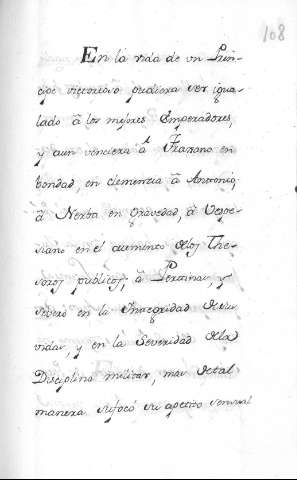 108
En la vida de un Prin-
cipe victorioso pudiera ser igua-
lado â los mejores Emperadores,
y aun venciera â Traxano en
bondad, en clemencia â Antonio,
â Nerba en gravedad, â Vespe-
siano en el aumento de los The-
soros publicos, â Pertinax, y
Severo en la Integridad de su
vida, y en la Severidad de la
Disciplina militar, mas de tal
manera sufocó su apetito sensual